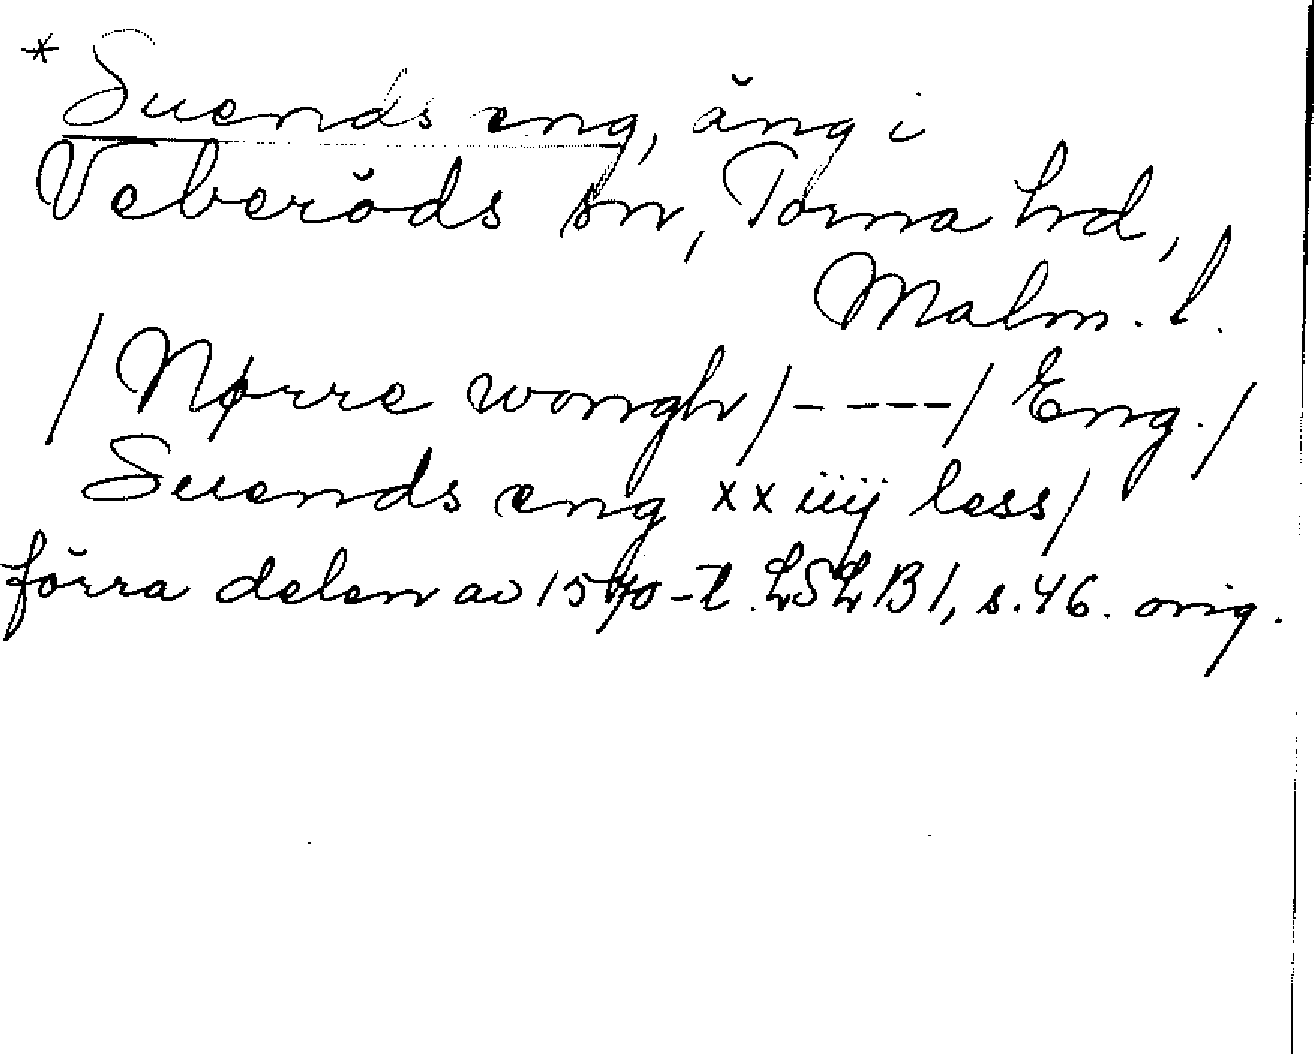 * Suends eng, äng i
Veberöds sn, Torna hd,
Malm. l.
/ Nørre wongh / - --- / Eng. /
Suends eng xx iiij less /
förra delen av 1570-t. LSLB 1, s. 46. orig.